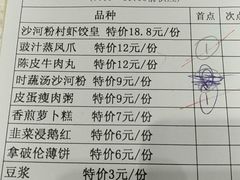 品种 首点 次点
沙河粉村虾饺皇 特价18.8元/份
豉汁蒸凤爪 特价12元/份 1
陈皮牛肉丸 特价12元/份
时蔬汤沙河粉 特价9元/份
皮蛋瘦肉粥 特价9元/份
香煎萝卜糕 特价7元/份
韭菜浸鹅红 特价6元/份
拿破伦薄饼 特价6元/份
豆浆 特价3元/份